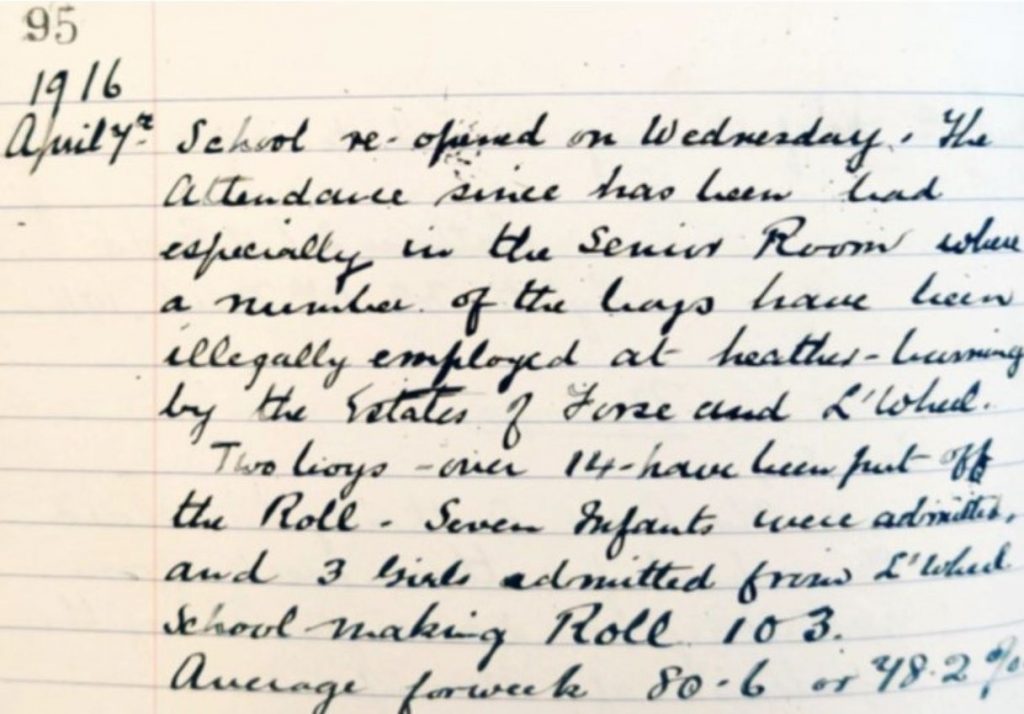 95
1916
April 7th School re-opened on Wednesday. The
Attendance since has been bad
especially in the Senior Room where
a number of the boys have been
illegally employed at heather-burning
by the Estates of Forse and L'Wheel.
Two boys - over 14 - have been put off
the Roll - Seven Infants were admitted,
and 3 Girls admitted from L'Wheel
School making Roll 103.
Average for week 80.6 or 78.2 %